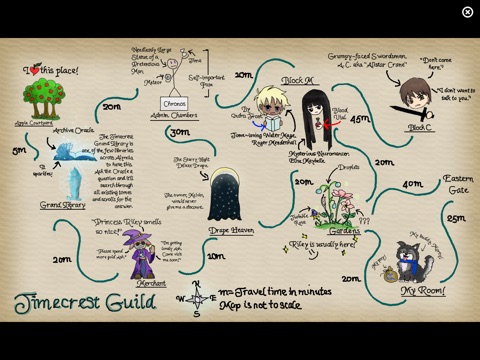 I ❤ this place!
Apple Courtyard
20m
5m
Needlessly Large
Statue of a
Pretentious
Man.
Meteor
Time
Self-Important
Pose
Chronos
Admin. Chambers
30m
20m
Block M
Time-loving Water Mage,
Mysterious Necromancer,
Blood
Vial
45m
Grumpy-faced Swordsman,
"Don't come
here."
"I don't want to
talk to you."
Block C
Archive Oracle
It
sparkles!
The Timecrest
Grand Library is
one of the few libraries
across Alyndia to
have this.
Ask the Oracle a
question and it'll
search through
all existing tomes
and scrolls for the
answer.
Grand Library
The Starry Night
Deluxe Drape.
The owner, Melvin,
would never
give a discount.
Drape Heaven
20m
Droplets
???
Gardens
Riley is usually here!
20m
40m
Eastern
Gate
25m
My Room!
20m
"Princess Riley smells
so nice!"
"Please spend
more gold, Ash."
Merchant
10m
20m
Timecrest Guild
N
W E
S
m = Travel time in minutes
Map is not to scale